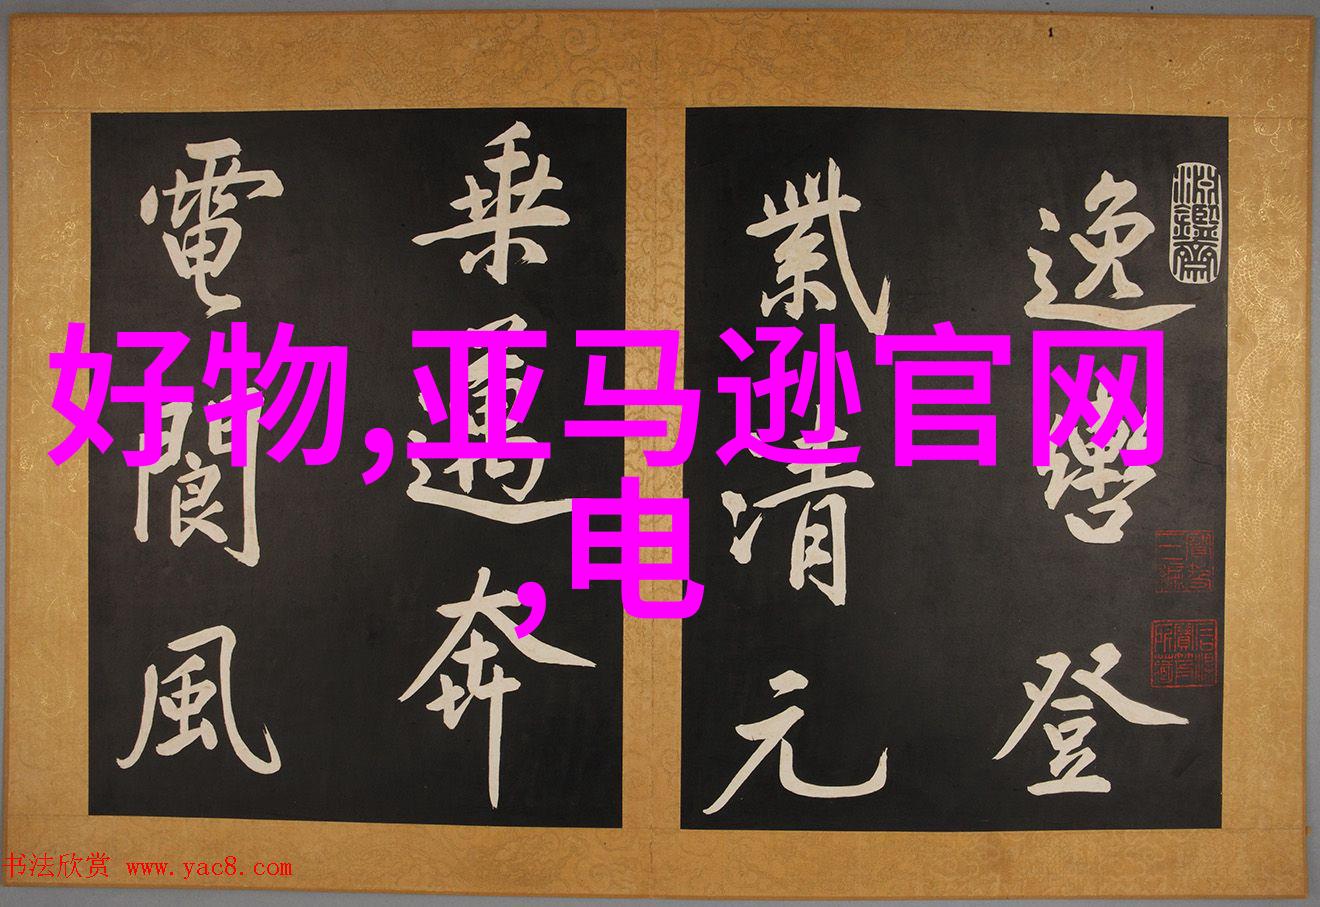 逸轡登
紫清元
乘邁奔
電閬風
好物,亚马逊官网
,电
书法欣赏 www.yac8.com